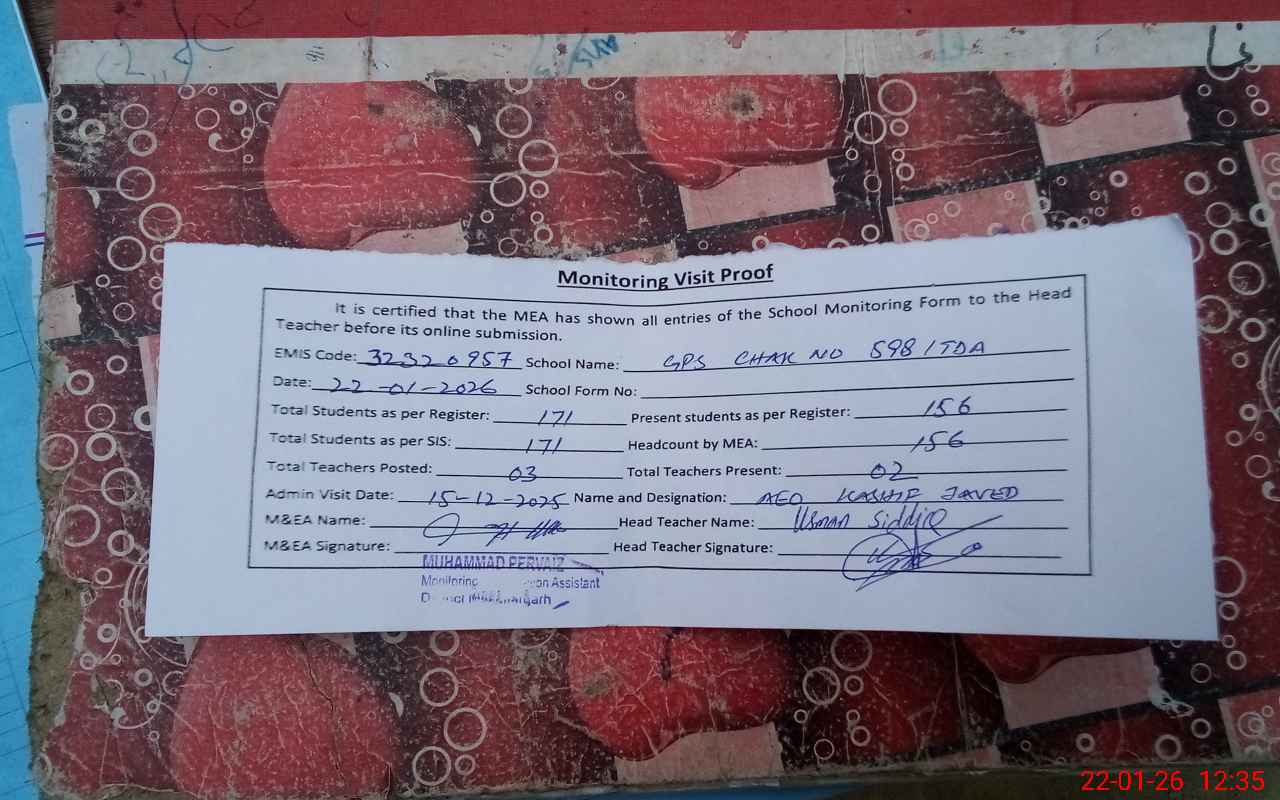 Monitoring Visit Proof
It is certified that the MEA has shown all entries of the School Monitoring Form to the Head
Teacher before its online submission.
EMIS Code: 32320957 School Name: GPS CHAK NO 598/TDA
Date: 22-01-2026 School Form No:
Total Students as per Register: 171 Present students as per Register: 156
Total Students as per SIS: 171 Headcount by MEA: 156
Total Teachers Posted: 03 Total Teachers Present: 02
Admin Visit Date: 15-12-2025 Name and Designation: AEO KASHIF JAVED
M&EA Name: Head Teacher Name: Usman Siddiq
M&EA Signature: Head Teacher Signature:
MUHAMMAD PERVAIZ
Monitoring Assistant
22-01-26 12:35